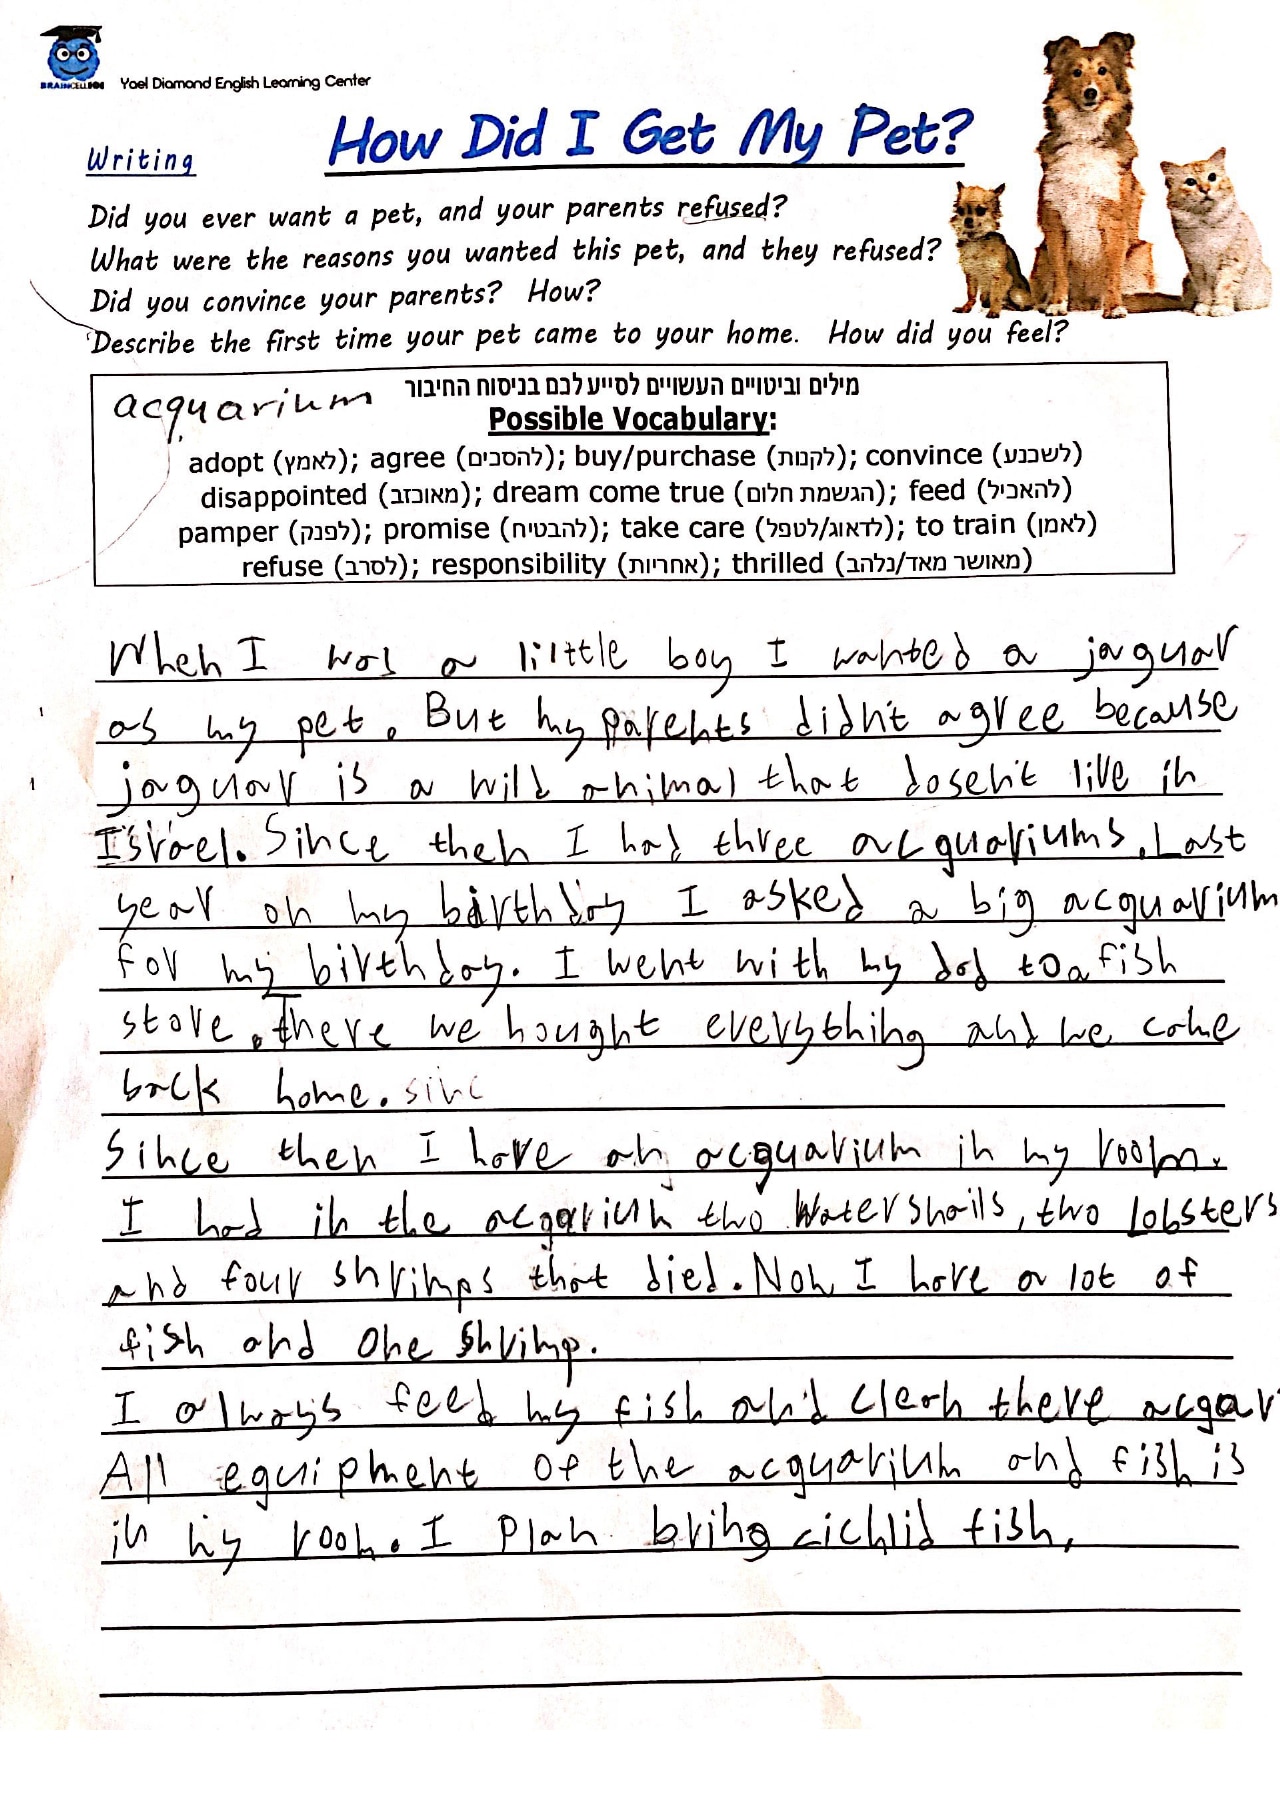 BRAINCELL101 Yael Diamond English Learning Center
How Did I Get My Pet?
Writing
Did you ever want a pet, and your parents refused?
What were the reasons you wanted this pet, and they refused?
Did you convince your parents? How?
Describe the first time your pet came to your home. How did you feel?
acquarium מילים וביטויים העשויים לסייע לכם בניסוח החיבור
Possible Vocabulary:
adopt (לאמץ); agree (להסכים); buy/purchase (לקנות); convince (לשכנע)
disappointed (מאוכזב); dream come true (הגשמת חלום); feed (להאכיל)
pamper (לפנק); promise (להבטיח); take care (לדאוג/לטפל); to train (לאמן)
refuse (לסרב); responsibility (אחריות); thrilled (מאושר מאד/נלהב)
When I was a liittle boy I wanted a jaguar
as my pet. But my parents didn't agree because
jaguar is a wild animal that dosen't live in
Israel. Since then I had three acquariums. Last
year on my birthday I asked a big acquarium
for my birthday. I went with my dad to a fish
store. There we bought everything and we came
back home. sinc
Since then I have an acquarium in my room.
I had in the acqarium two Water snails, two lobsters
and four shrimps that died. Now I have a lot of
fish and one shrimp.
I always feed my fish and clean there acqar
All equipment of the acquarium and fish is
in my room. I plan bring cichlid fish,